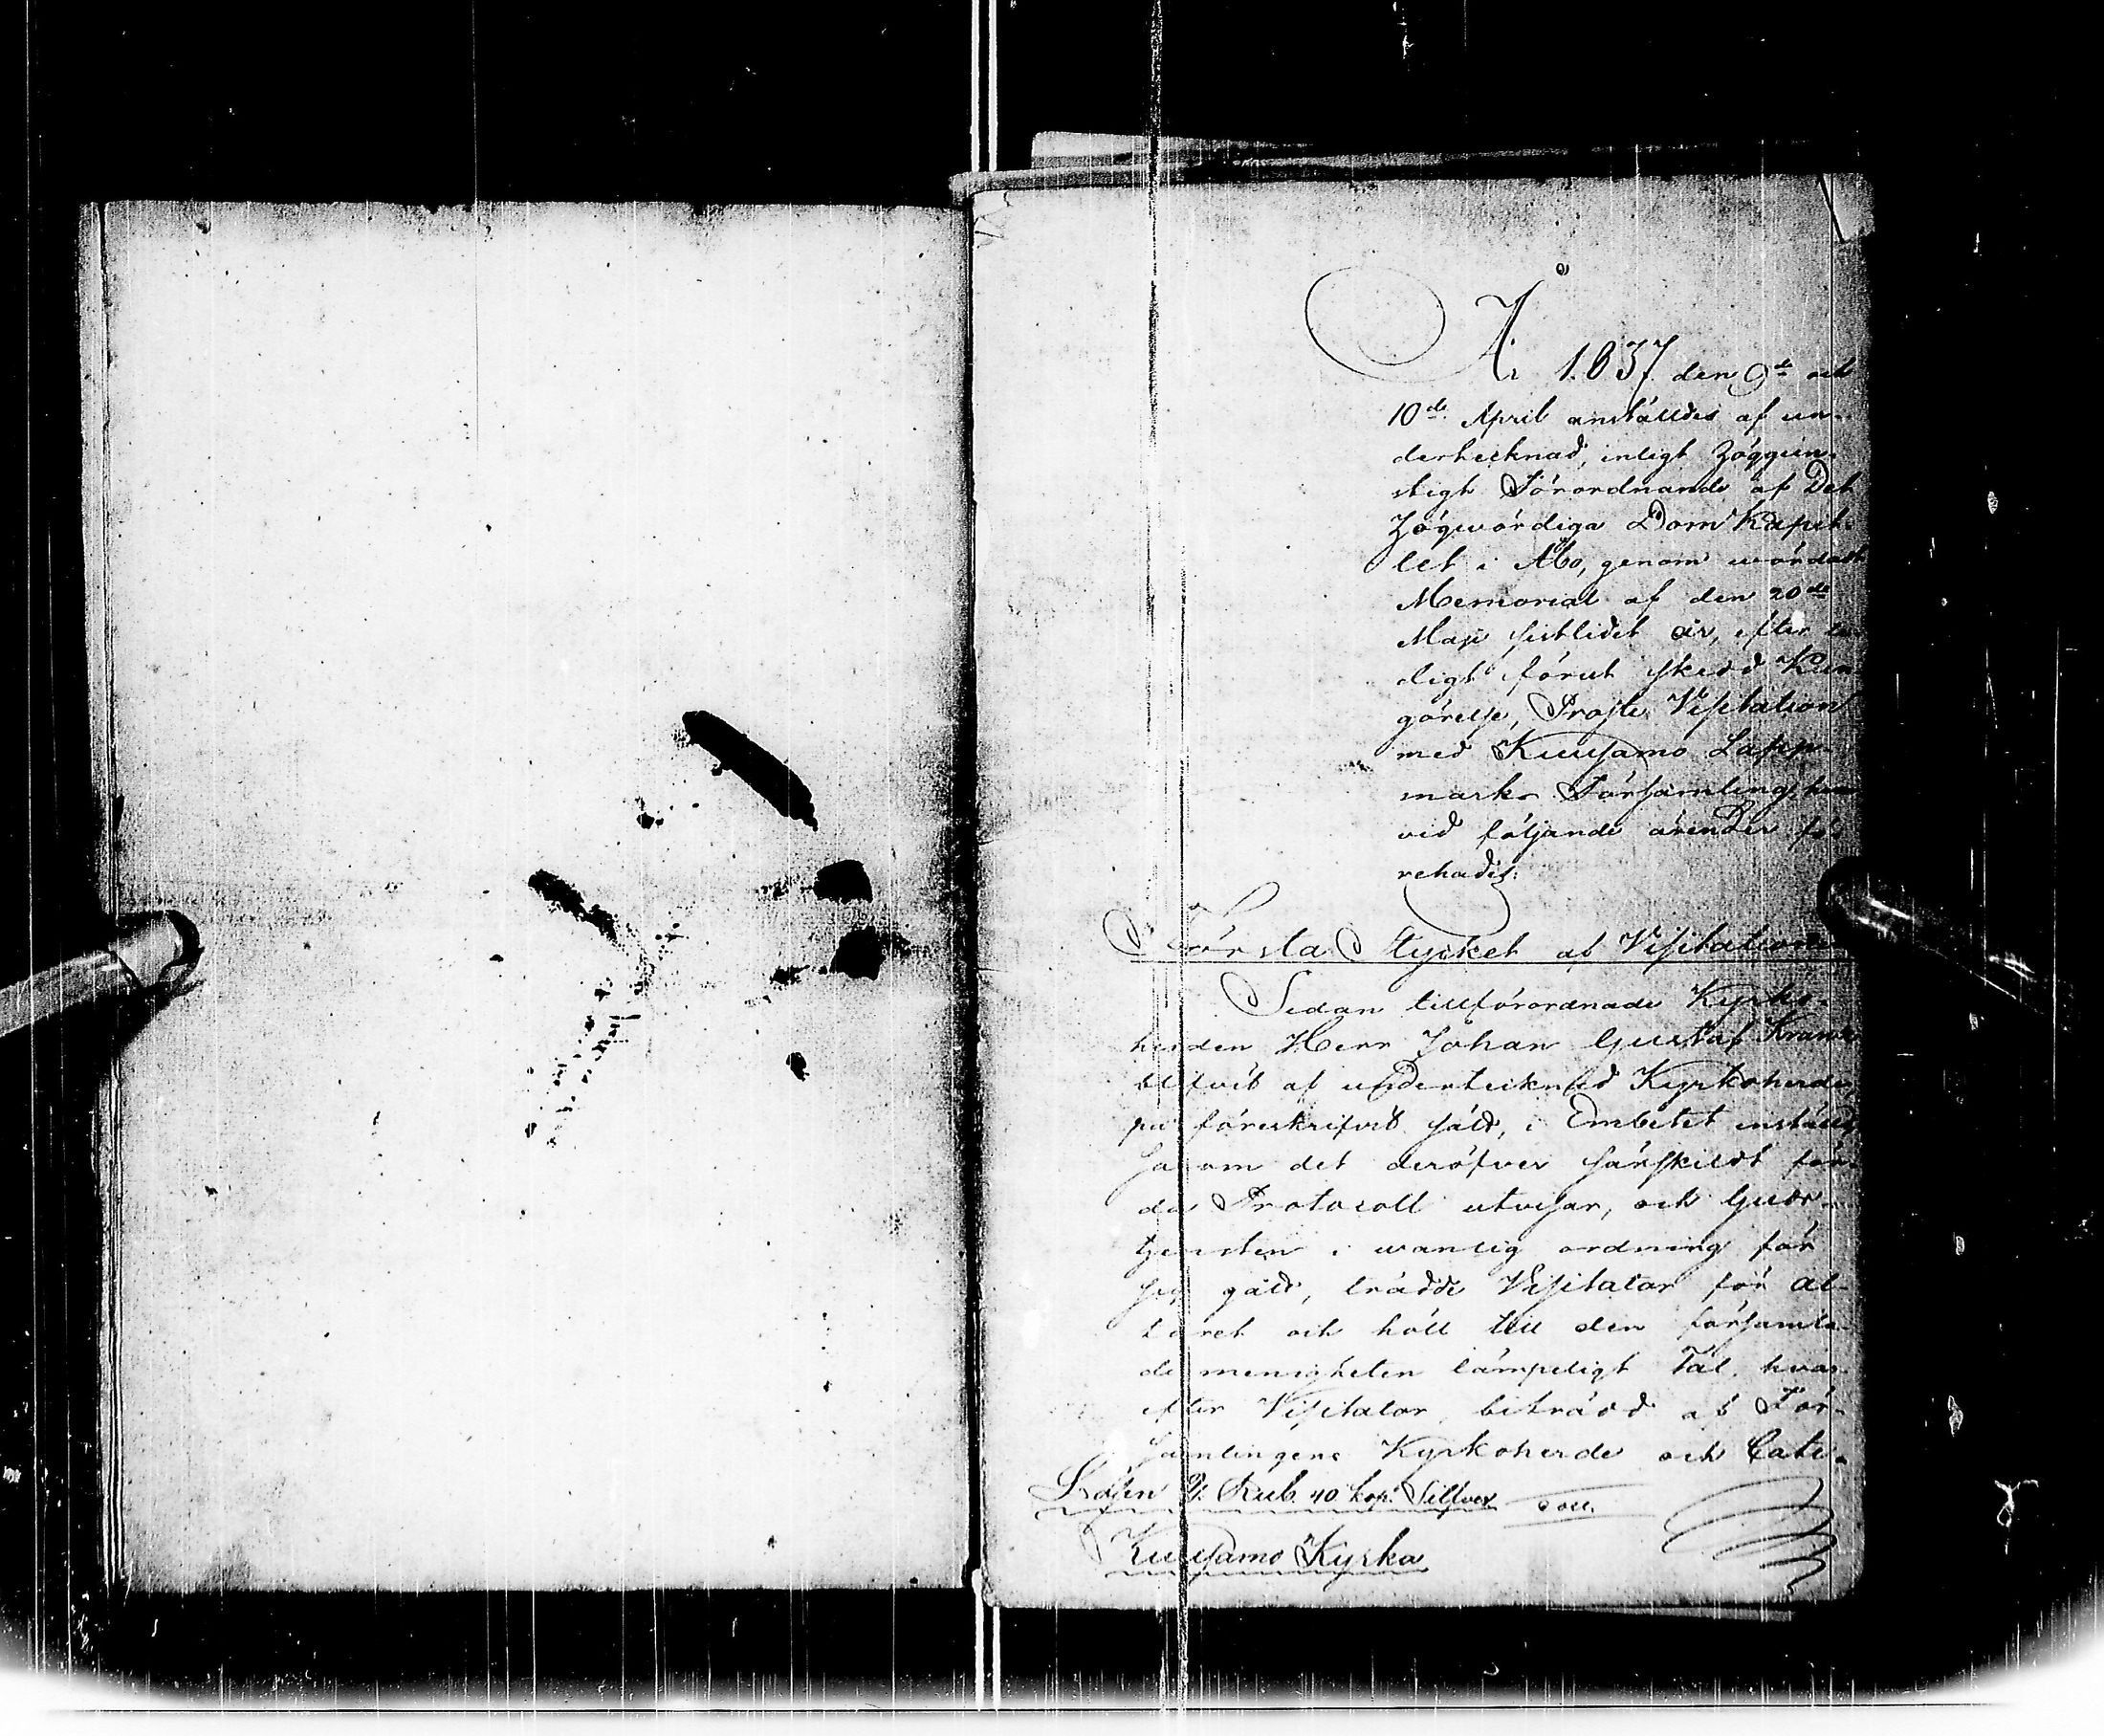 År 1837 den 9de och
10de April anställdes af un-
dertecknad, enligt Höggun-
stigt Förordnande af Det
Högwördiga Dom Kapit-
let i Åbo, genom wördadt
Memorial af den 20de
Maji sistlidet år, efter
ligt förut skedd Kun-
görelse, Prosте Visitation
med Kuusamo Lapp-
marks Församling, hwar-
vid följande ärender fö-
rehades:
Första Stycket af Visitationen
Sedan tillförordnade Kyrko-
herden Herr Johan Gustaf
blifvit af undertecknad Kyrkoherde,
på föreskrifvit sätt, i Embetet inställd,
såsom det deröfver särskildt för-
da Protocoll utvisar, och Guds-
tjensten i wanlig ordning för
sig gått, trädde Visitator för al-
taret och höll till den församla-
de menigheten lämpeligt Tal, hvar-
efter Visitator, biträdd af För-
samlingens Kyrkoherde och Cate-
Lösen Rub. 40 kop. Silfver
Kuusamo Kyrka